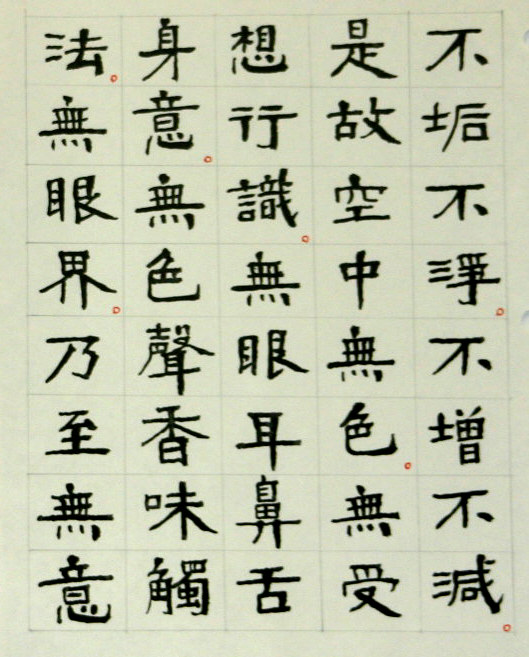 不垢不淨。不增不減。
是故空中無色。無受
想行識。無眼耳鼻舌
身意。無色聲香味觸
法。無眼界。乃至無意